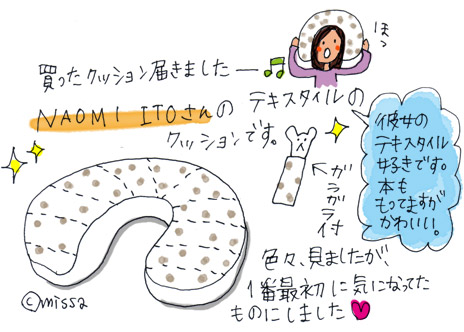 ほっ
買ったクッション届きましたー
NAOMI ITOさんの テキスタイルの
クッションです。
彼女の
テキスタイル
好きです。
本も
もってますが
かわいい。
ガラガラ付
色々、見ましたが、
1番最初に気になってた
ものにしました
©missa